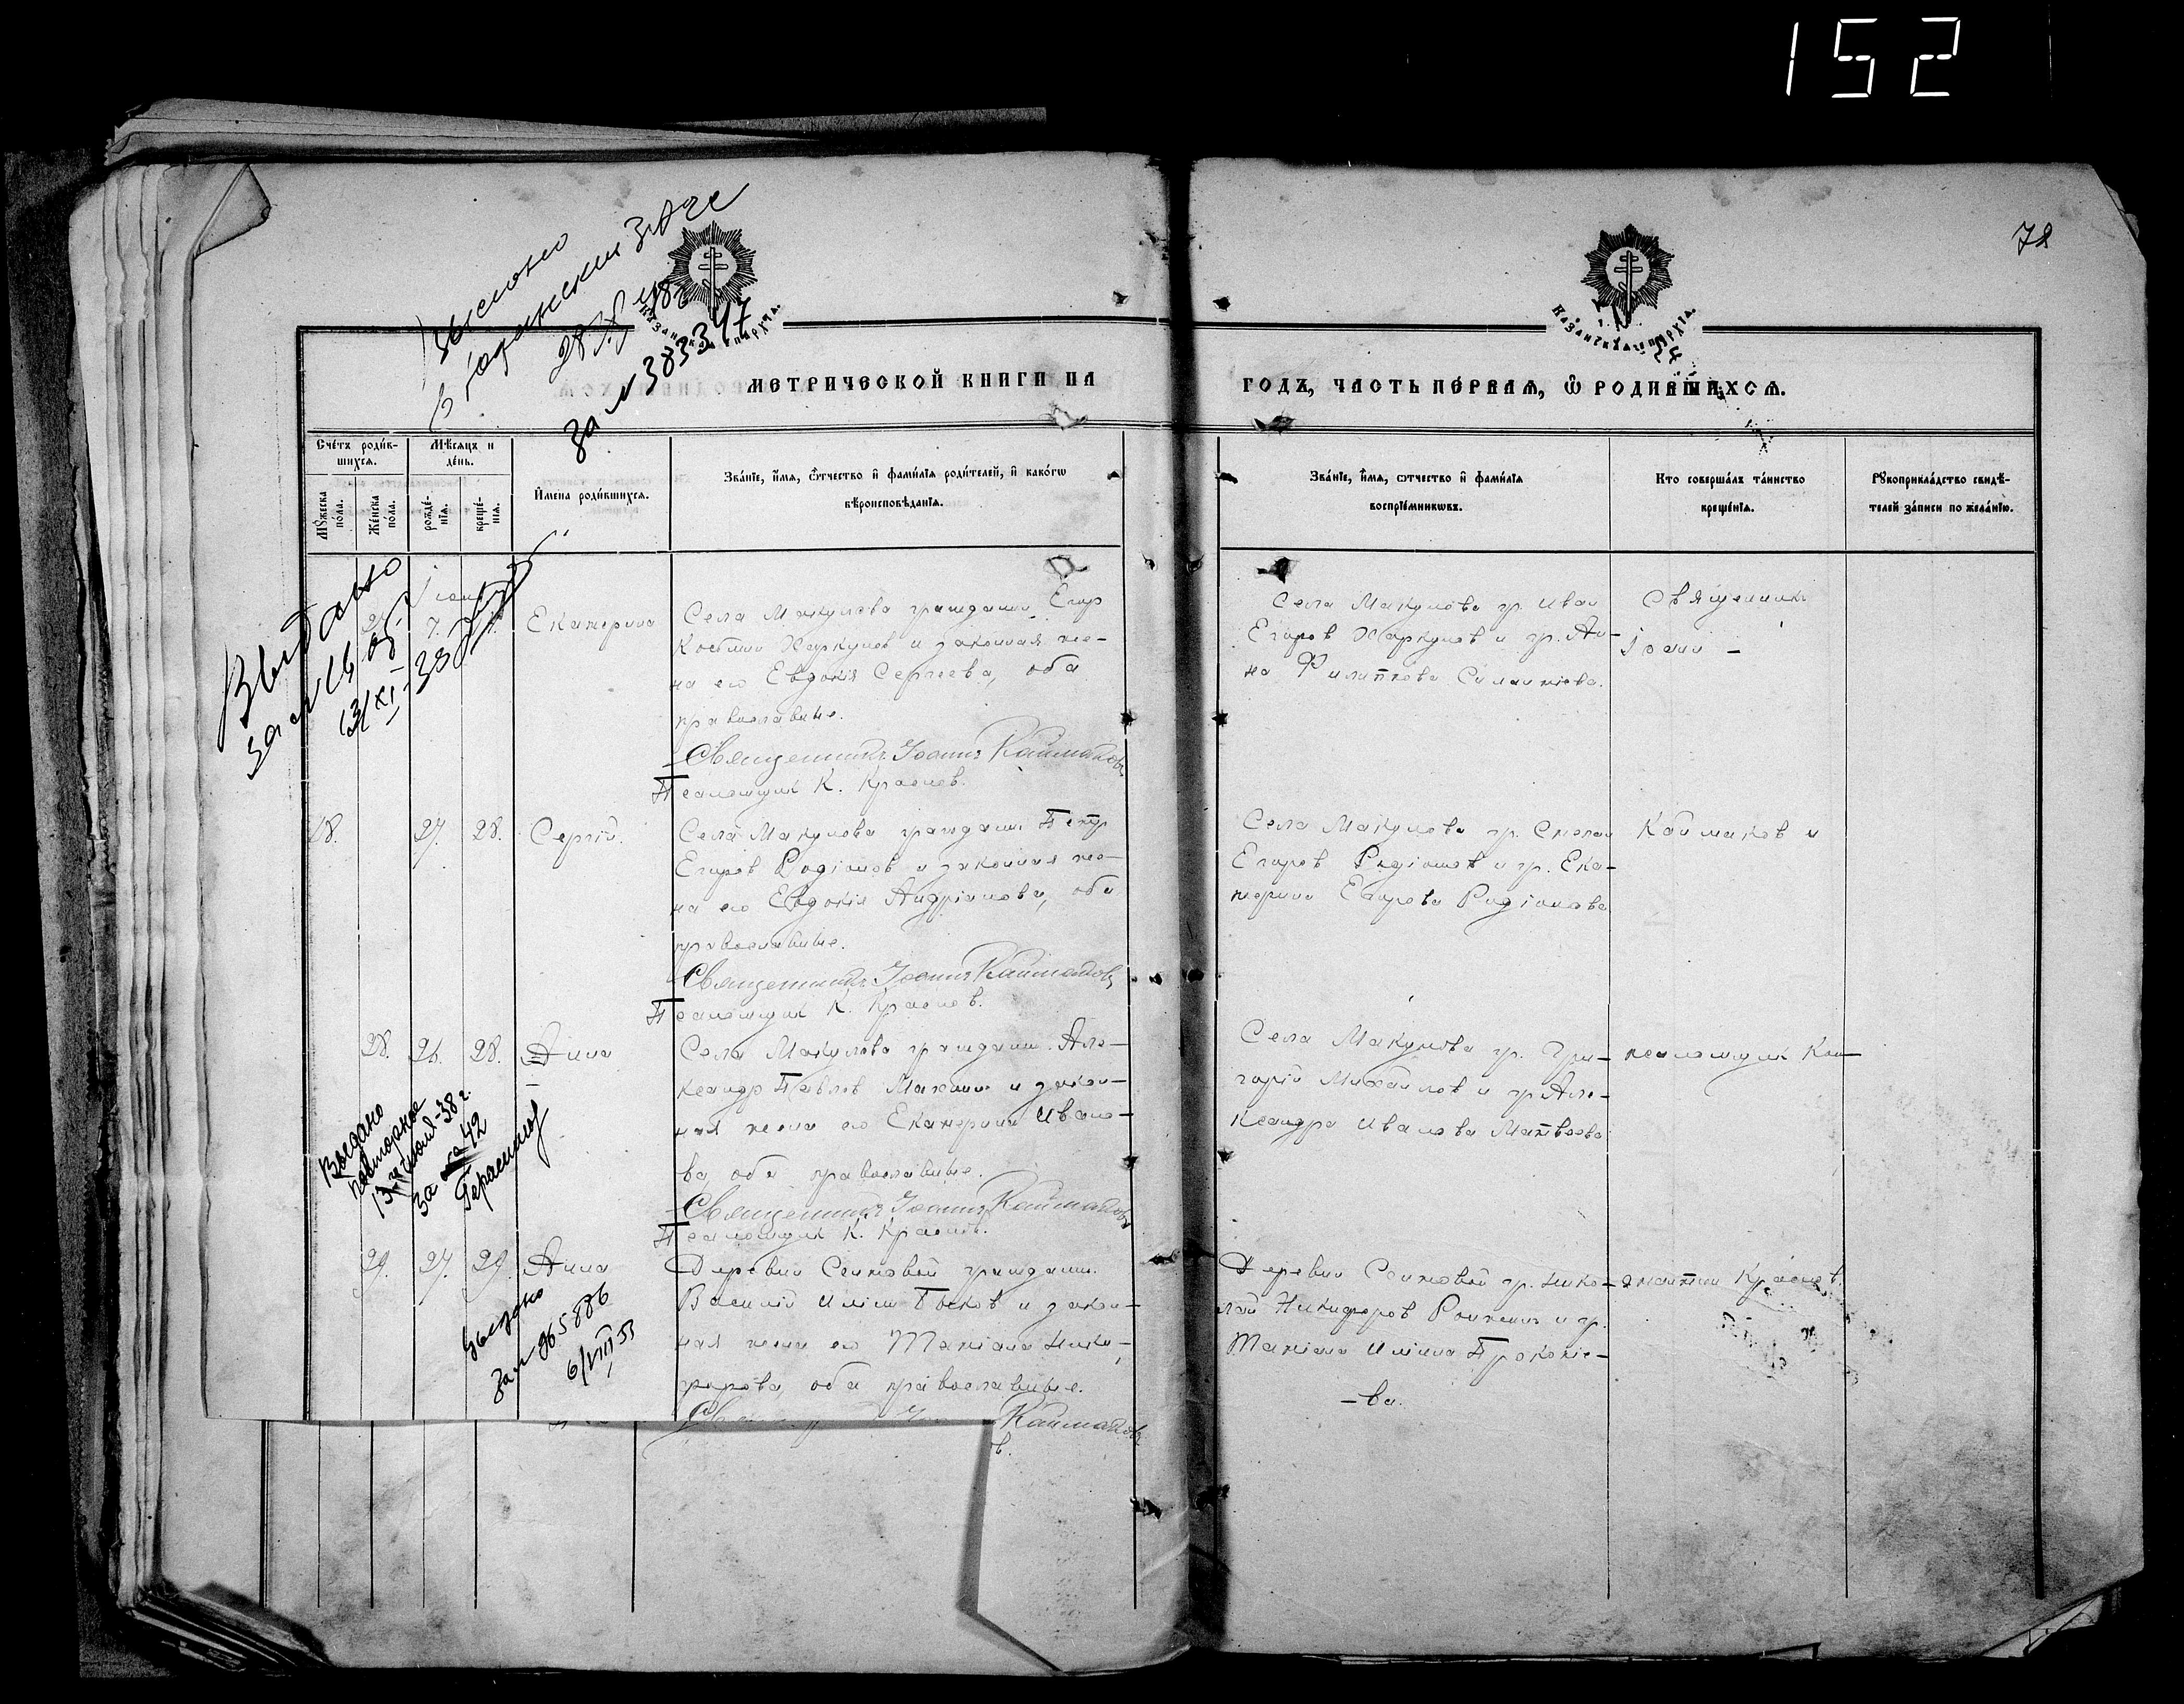 152
78
Казанск. епархіа.
Казанск. епархіа.
Выслано
28.
за № 383347
МЕТРИЧЕСКОЙ КНИГИ НА
ГОДЪ, ЧАСТЬ ПЕРВАЯ, Ѽ РОДИВШИХСЯ.
Счетъ родив-
шихся.
Мужеска
пола.
Женска
пола.
Мѣсяцъ и
день.
рожде-
нія.
креще-
нія.
Имена родившихся.
Званіе, имя, отчество и фамилія родителей, и какогѡ
вѣроисповѣданія.
Званіе, имя, отчество и фамилія
воспріемниковъ.
Кто совершалъ таинство
крещенія.
Рукоприкладство свидѣ-
телей записи по желанію.
Выдано
Екатерина
Села Макулова граждани. Егор
Косьмин Харкунов и законная же-
на его Евдокія Сергеева, оба
православные.
Священникъ Іоаннъ Каймаковъ
Псаломщик К. Краснов.
Села Макулова гр. Иван
Егоров Харкунов и гр. Ан-
на Филиппова
Священник
Іоанн –
18.
27.
28.
Сергій.
Села Макулова граждани. Петр
Егоров Родіонов и законная же-
на его Евдокія Андріанова, оба
православные.
Священникъ Іоаннъ Каймаковъ
Псаломщик К. Краснов.
Села Макулова гр. Степан
Егоров Родіонов и гр. Ека-
терина Егорова Родіонова
Каймаков и
28.
26.
28.
Анна
Села Макулова граждани. Але-
ксандр Павлов Махнин и закон-
ная жена его Екатерина Ивано-
ва, оба православные.
Священникъ Іоаннъ Каймаковъ
Псаломщик К. Краснов.
Села Макулова гр. Гри-
горій Михайлов и гр. Але-
ксандра Иванова Матвеева
псаломщик Кон-
Выдано
повторное
13 июля-38 г.
за № 42
Герасимов
29.
27.
29.
Анна
Деревни Сеитовой граждани.
Василій Ильин Босков и закон-
ная жена его Татіана Ники-
форова, оба православные.
Каймаковъ
в.
Деревни Сеитовой гр. Нико-
лай Никифоров и гр.
Татіана Ильина Прокопіе-
–ва.
стантин Краснов.
Выдано
за № 965886
6/VIII 55